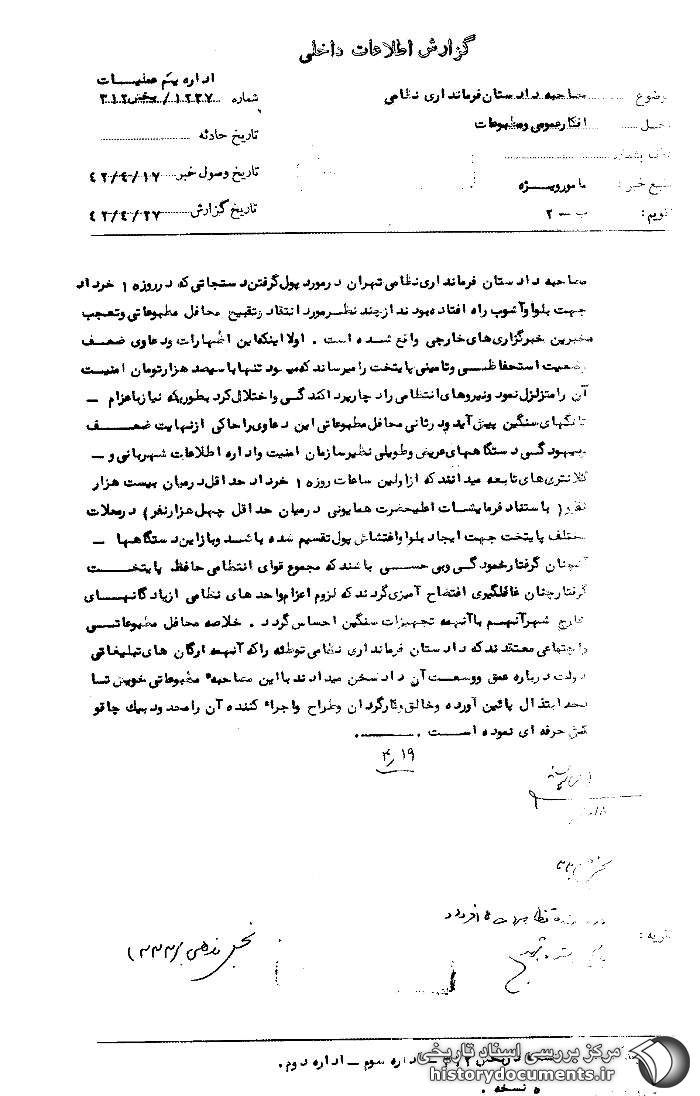 گزارش اطلاعات داخلی
اداره یکم عملیات
موضوع مصاحبه دادستان فرمانداری نظامی
شماره ۱۲۳۷ / بخش ۳۱۲
افکار عمومی و مطبوعات
تاریخ حادثه
تاریخ وصول خبر ۴۲/۴/۱۷
منبع خبر : مامور ویژه
تاریخ گزارش ۴۲/۴/۲۷
تقویم : ب - ۲
مصاحبه دادستان فرمانداری نظامی تهران در مورد پول گرفتن دستجاتی که در روز ۱۵ خرداد
جهت بلوا و آشوب راه افتاده بودند از چند نظر مورد انتقاد و تقبیح محافل مطبوعاتی و تعجب
مخبرین خبرگزاری های خارجی واقع شده است . اولا اینکه این اظهارات و دعاوی ضعف
وضعیت استحفاظی و تامینی پایتخت را میرساند که میشود تنها با سیصد هزار تومان امنیت
آن را متزلزل نمود و نیروهای انتظامی را دچار پراکندگی و اختلال کرد بطوریکه نیاز باعزام -
تانکهای سنگین پیش آید و در ثانی محافل مطبوعاتی این دعاوی را حاکی از نهایت ضعف
و بیهودگی دستگاههای عریض و طویلی نظیر سازمان امنیت و اداره اطلاعات شهربانی و -
کلانتری های تابعه میدانند که از اولین ساعات روز ۱۵ خرداد حداقل در میان بیست هزار
نفر و ( با ستناد فرمایشات اعلیحضرت همایونی در میان حداقل چهل هزار نفر ) در محلات
مختلف پایتخت جهت ایجاد بلوا و اغتشاش پول تقسیم شده باشد و باز این دستگاهها -
آنچنان گرفتار خمودگی و بی حسی باشند که مجموع قوای انتظامی حافظ پایتخت
گرفتار چنان غافلگیری افتضاح آمیزی گردند که لزوم اعزام واحدهای نظامی از پادگانهای
خارج شهر آنهم با آنهمه تجهیزات سنگین احساس گردد . خلاصه محافل مطبوعاتی
و اجتماعی معتقدند که دادستان فرمانداری نظامی توطئه را که آنهمه ارگان های تبلیغاتی
دولت درباره عمق و وسعت آن داد سخن میدادند با این مصاحبه مطبوعاتی خویش تا
بحد ابتذال پائین آورده و خالق و کارگردان و طراح و اجراء کننده آن را محدود بیک چاقو
کش حرفه ای نموده است .
۴/۱۹
تظاهرات ۱۵ خرداد
اداره سوم - اداره دوم .
۵ نسخه .
مرکز بررسی اسناد تاریخی
historydocuments.ir